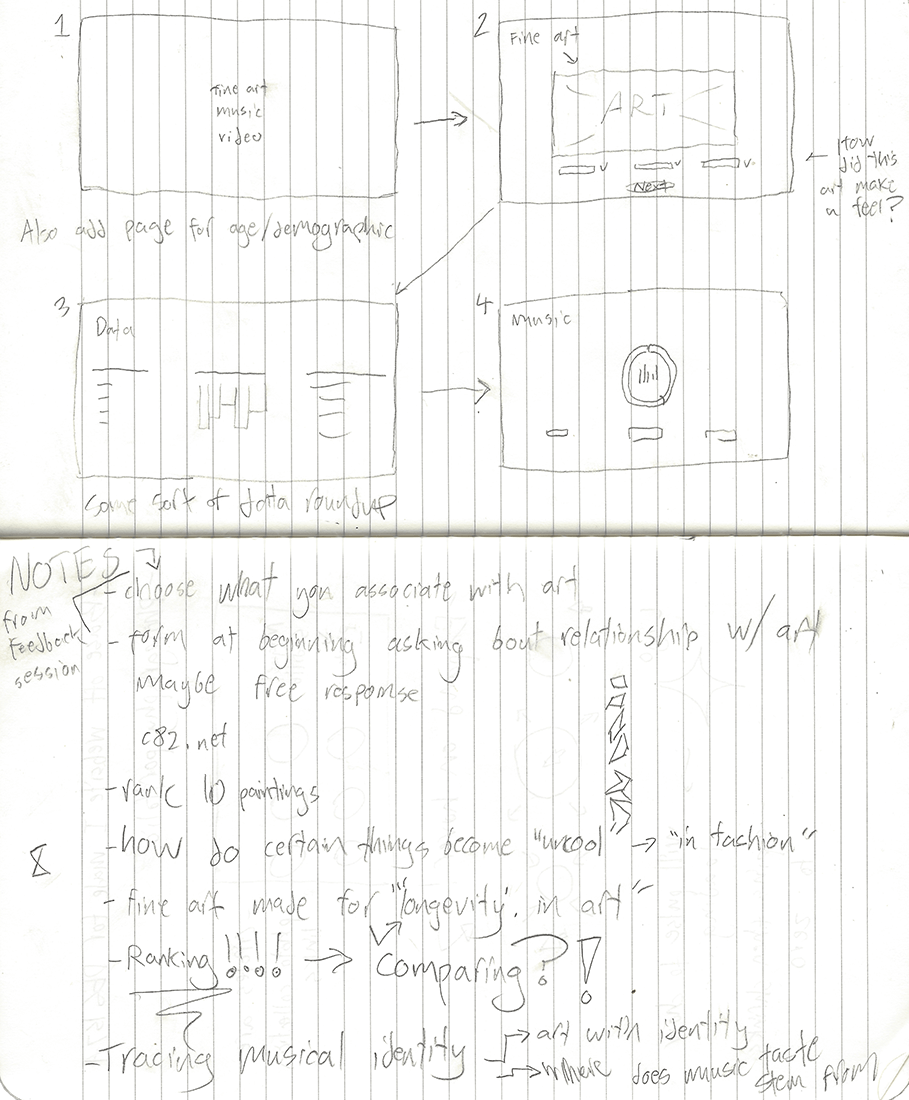 1
fine art
music
video
Also add page for age/demographic
2
Fine art
ART
Next
How
did this
art make
u feel?
3
Data
some sort of data roundup
4
Music
NOTES
from
feedback
session
- choose what you associate with art
- form at beginning asking bout relationship w/ art
maybe free response
c82.net
- rank 10 paintings
- how do certain things become "uncool → "in fashion"
- fine art made for "longevity". in art"
- Ranking!!!! → Comparing?!
- Tracing musical identity
→ art with identity
→ where does music taste
stem from